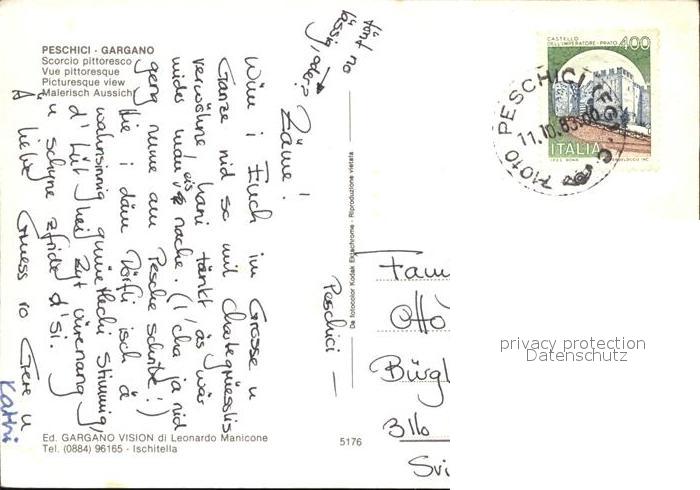 PESCHICI - GARGANO
Scorcio pittoresco
Vue pittoresque
Picturesque view
Malerisch Aussicht
tönt no
lässig, oder?
Zäme!
Wüu i Euch im Grosse u
Ganze nid so mit Chartegrüessli
verwöhne, hani tänkt äs wär
mau eis nache. (I cha ja nid
geng nume am Pesche schribe!)
Hie i däm Dörfli isch ä
wahnsinnig gmüetlechi Stimmig,
d'Lüt hei Zyt
u schyne zfride z'si.
Ä liebe Gruess vo Gere u
Kathri
Peschici —
Ed. GARGANO VISION di Leonardo Manicone
Tel. (0884) 96165 - Ischitella
5176
Da fotocolor Kodak Ektachrome - Riproduzione vietata
CASTELLO
DELL'IMPERATORE - PRATO
400
ITALIA
71010 PESCHICI (FG)
11.10.83
Fam
Otto
Bürgl
3116
Svi
privacy protection
Datenschutz